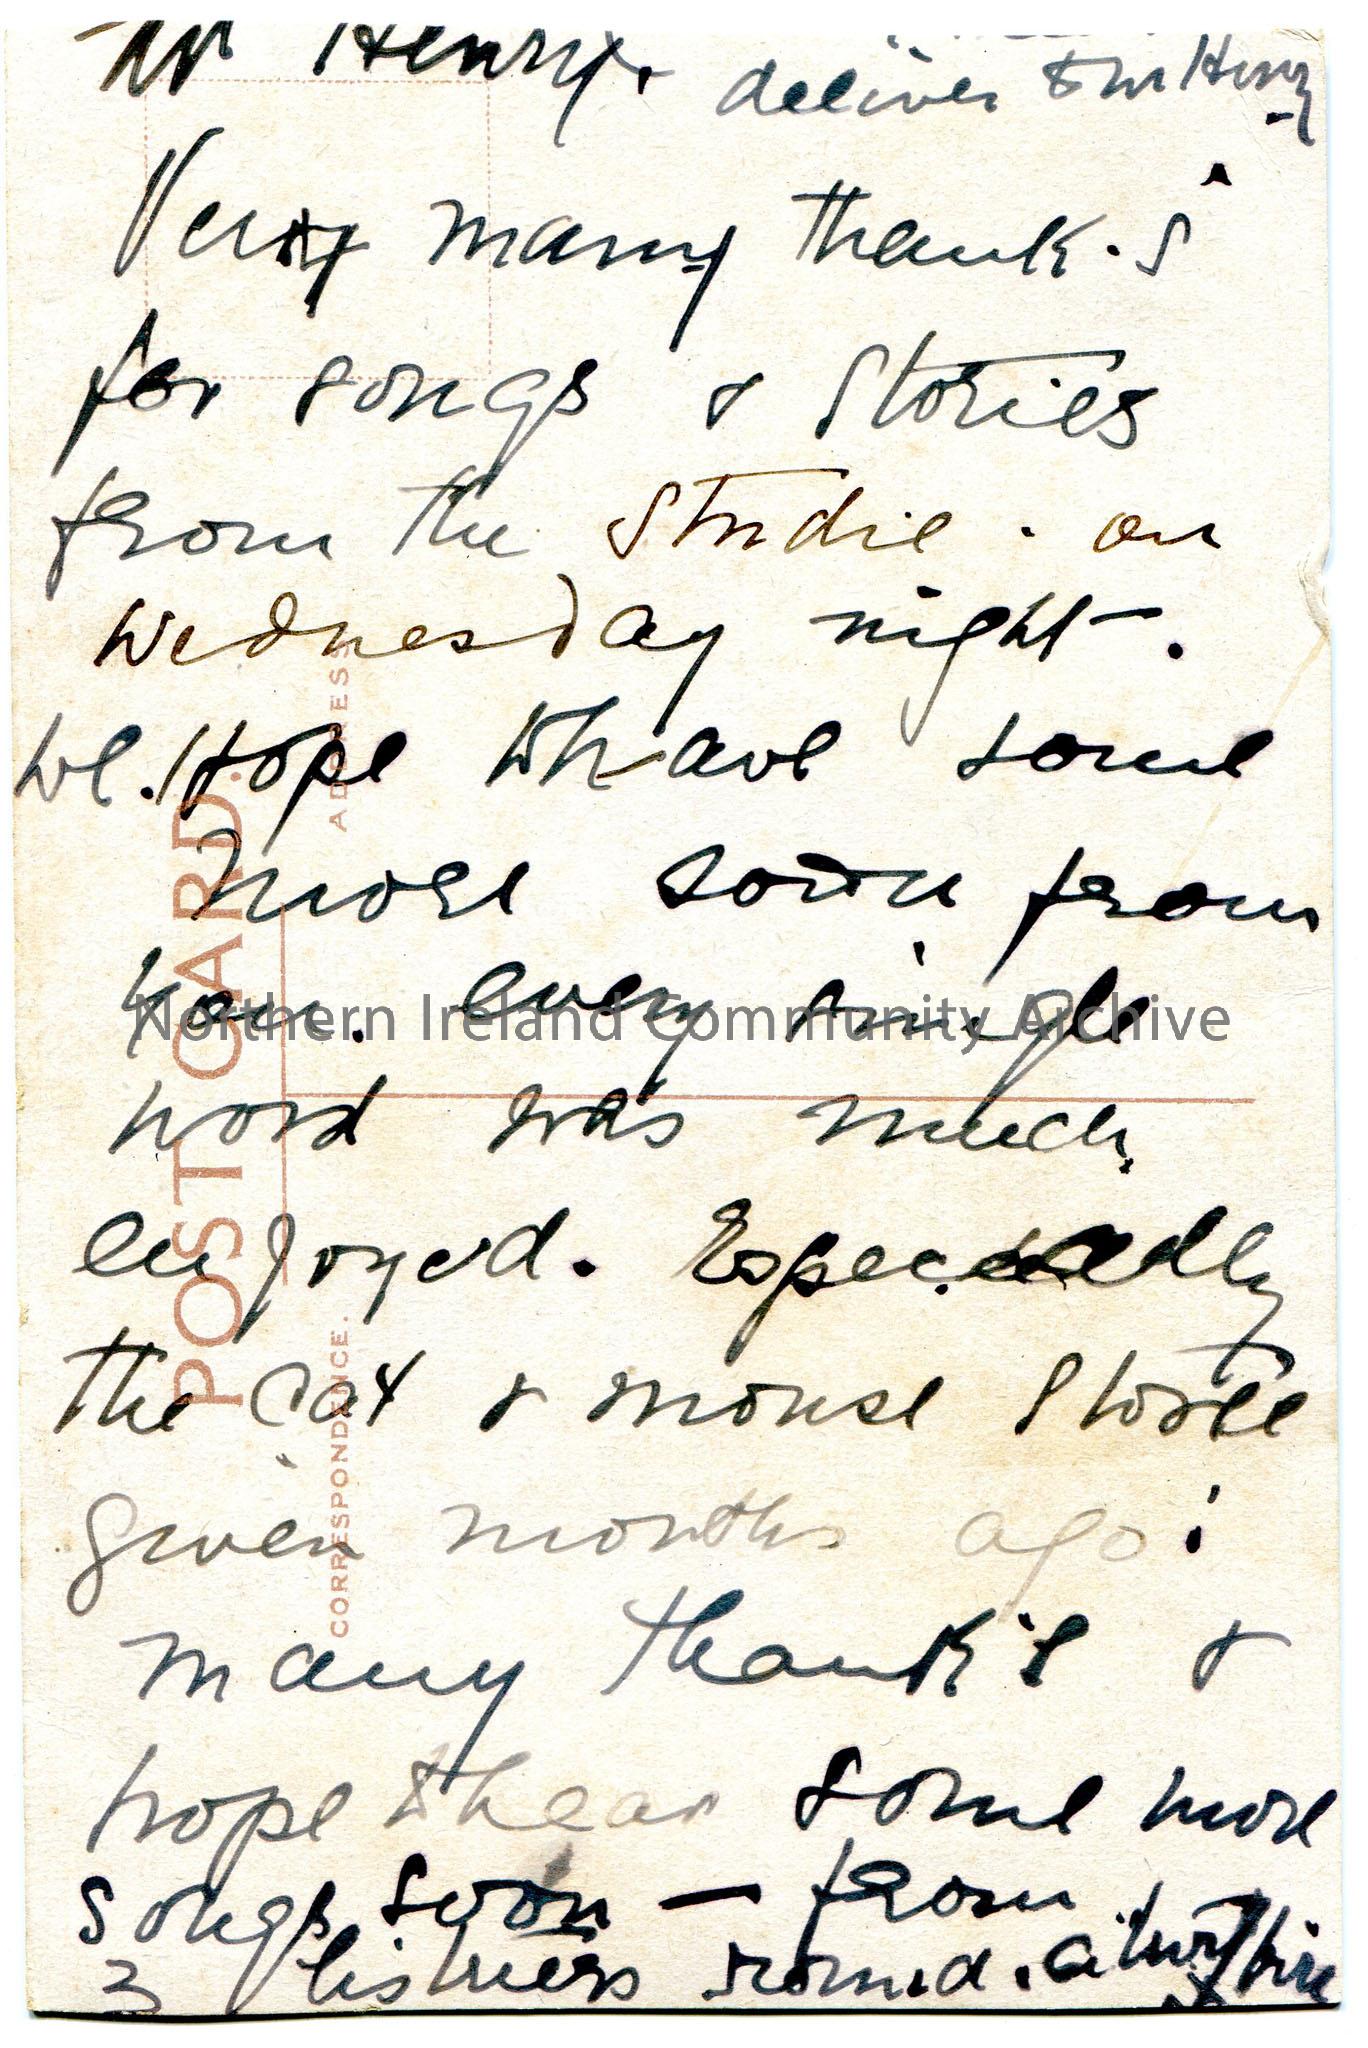 Mr Henry. deliver to Mr Henry
Very many thank.s
for songs & stories
from the studie. on
Wednesday night.
We. Hope to have some
more soon from
you. every single
word was much
enjoyed. Especially
the Cat & mouse storee
given months ago!
many thank's &
hope to hear some more
songs soon — from
3 listners round. a turf fire
POST CARD.
CORRESPONDENCE.
ADDRESS
Northern Ireland Community Archive